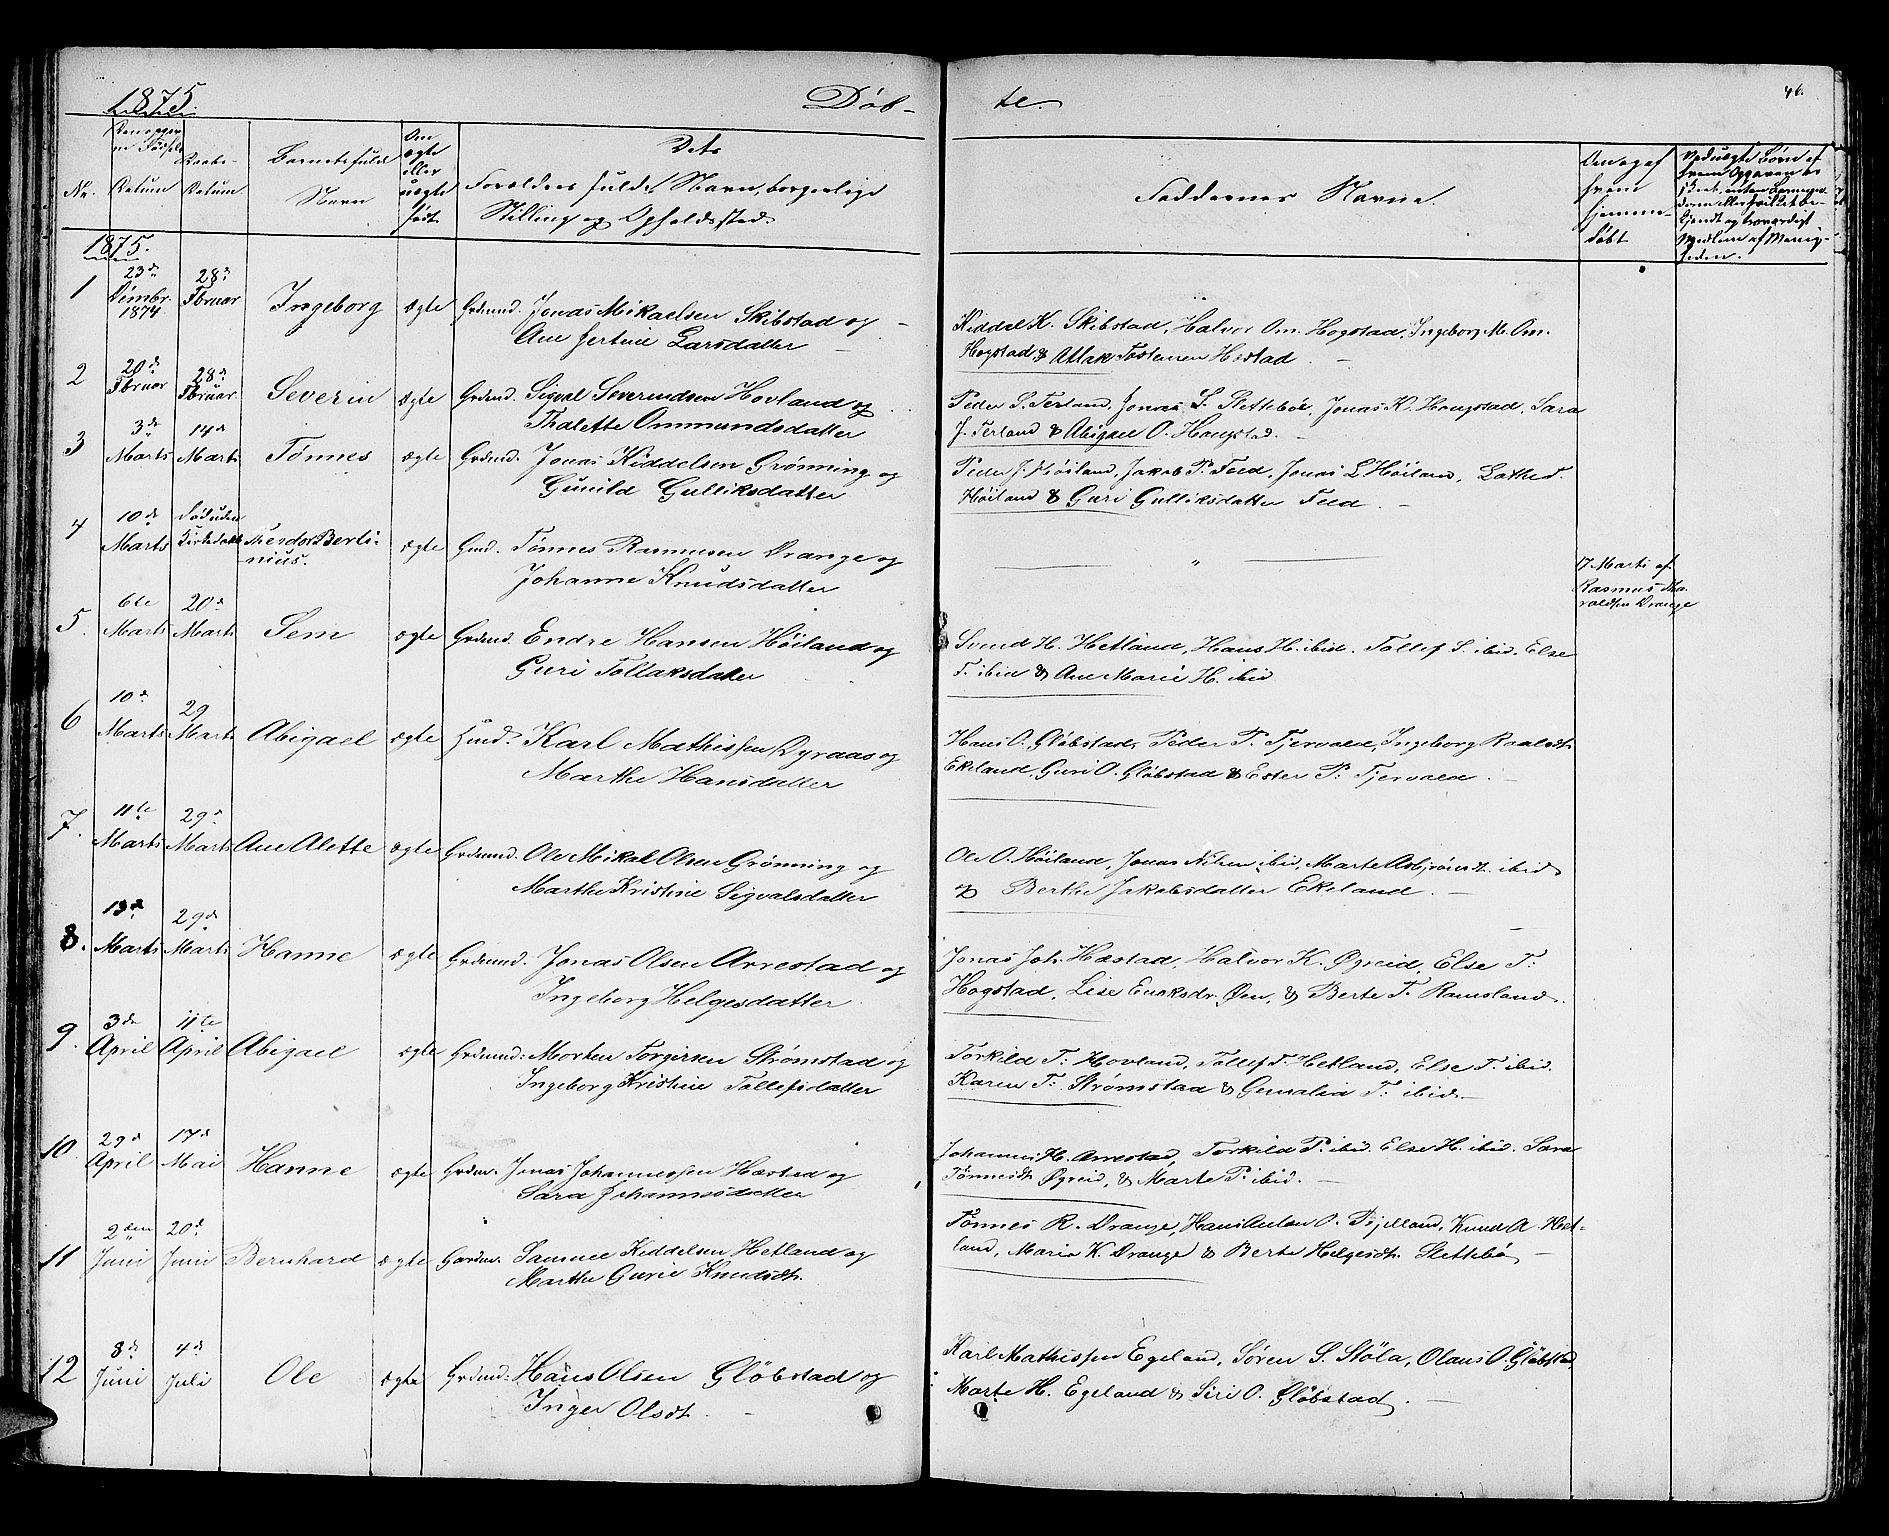 1875
Døb-
te.
46.
Nr.
Datum
Daabs-
Datum
Barnets fulde
Navn
Om
ægte
eller
uægte
født
Dets
Forældres fulde Navn, borgerlige
Stilling og Opholdssted.
Faddernes Navne.
Om og af
hvem
hjemme-
døbt
1875.
1
23de
Dembr.
1874
28de
Fbruar
Ingeborg
ægte
Grdmnd. Jonas Mikaelsen Skibstad og
Ane Larsdatter
Kiddel K. Skibstad, Halvor Om. Hogstad, Ingeborg M. Om.
Hogstad & Atlak Tostensen Hæstad.
2
20de
Fbruar
28de
Fbruar.
Severin
ægte
Grdmd. Sigval Severindsen Hovland og
Thalette Ommundsdatter
Peder S. Terland, Jonas S. Slettebøe, Jonas K. Haugstad, Sara
J. Terland & Abigael O. Haugstad.
3
3de
Marts
14de
Marts
Tønnes
ægte
Grdmd. Jonas Kiddelsen Grønning og
Gunild Gulliksdatter
Peder J. Høiland, Jakob P. Feed, Jonas L. Høiland,
Høiland & Guri Gulliksdatter Feed.
4
10de
Marts
Død uden
Kirkedaab
Theodor Berti-
nius.
ægte
Gmd. Tønnes Rasmusen Drange og
Johanne Knudsdatter
"
17 Marts af
Rasmus Ha-
raldsen Drange
5.
6te
Marts
20de
Marts
Sem
ægte
Grdmd. Endre Hansen Høiland og
Guri Tollaksdatter
Svend H. Hetland, Hans H. ibid. Tollef S. ibid. Else
T. ibid & Ane Marie H. ibid
6
10de
Marts
29
Marts
Abigael
ægte
Hmd. Karl Mathissen Dyraas og
Marthe Hansdatter
Hans O. Gløbstad, Peder P. Tjervald, Ingeborg
Ekeland, Guri O. Gløbstad & Ester P. Tjervald.
7.
11te
Marts
29de
Marts
Ane Alette
ægte
Grdmnd. Ole Mikal Olsen Grønning og
Marthe Kristine Sigvalsdatter
Ole O. Høiland, Jonas Nilsen ibid, Marte Asbjørnsdt. ibid
og Berthe Jakobsdatter Ekeland.
8.
13de
Marts
29de
Marts
Hanne
ægte
Grdmnd. Jonas Olsen Arrestad og
Ingeborg Helgesdatter
Jonas Joh. Hæstad, Halvor K. Øgreid, Else T.
Hogstad, Lise Eriksdr. Øen, & Berte T. Ramsland.
9.
3de
April
11te
April
Abigael
ægte
Grdmnd: Morten Torgirsen Strømstad og
Ingeborg Kristine Tollefsdatter
Torkild T. Hovland, Tollef T. Hetland, Else T. ibid.
Karen T. Strømstad & Gunalia T. ibid.
10.
29de
April
17de
Mai
Hanne
ægte
Grdm. Jonas Johannessen Hæstad og
Sara Johannesdatter
Johannes H. Arrestad, Torkild P. ibid. Else H. ibid. Sara
Tønnesdt. Øgreid, & Marte P. ibid.
11
2den
Juni
20de
Juni
Bernhard
ægte
Gardm. Samuel Kiddelsen Hetland og
Marthe Gurie Knudsdt.
Tønnes R. Drange, Hans Anton O. Bjelland, Knud A. Het-
land, Maria K. Drange & Berte Helgesdt. Slettebø
12
8de
Juni
4de
Juli
Ole
ægte
Grdmd: Hans Olsen Gløbstad og
Inger Olsdt.
Karl Mathissen Egeland, Søren S. Støla, Olaus O. Gløbstad
Marte H. Egeland & Siri O. Gløbstad.